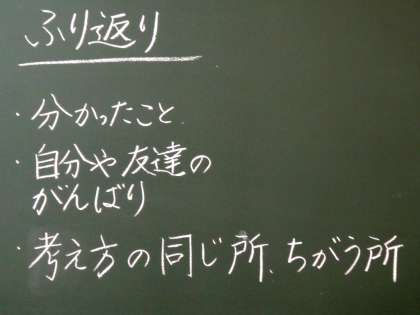 ふり返り
・分かったこと
・自分や友達の
がんばり
・考え方の同じ所、ちがう所